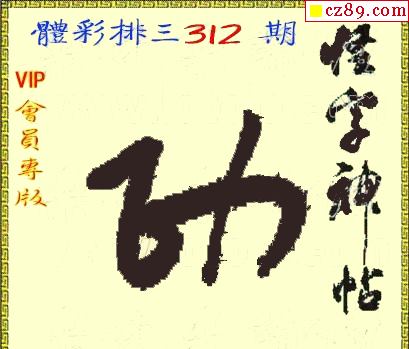 cz89.com
體彩排三312 期
VIP會員專版
怪字神帖